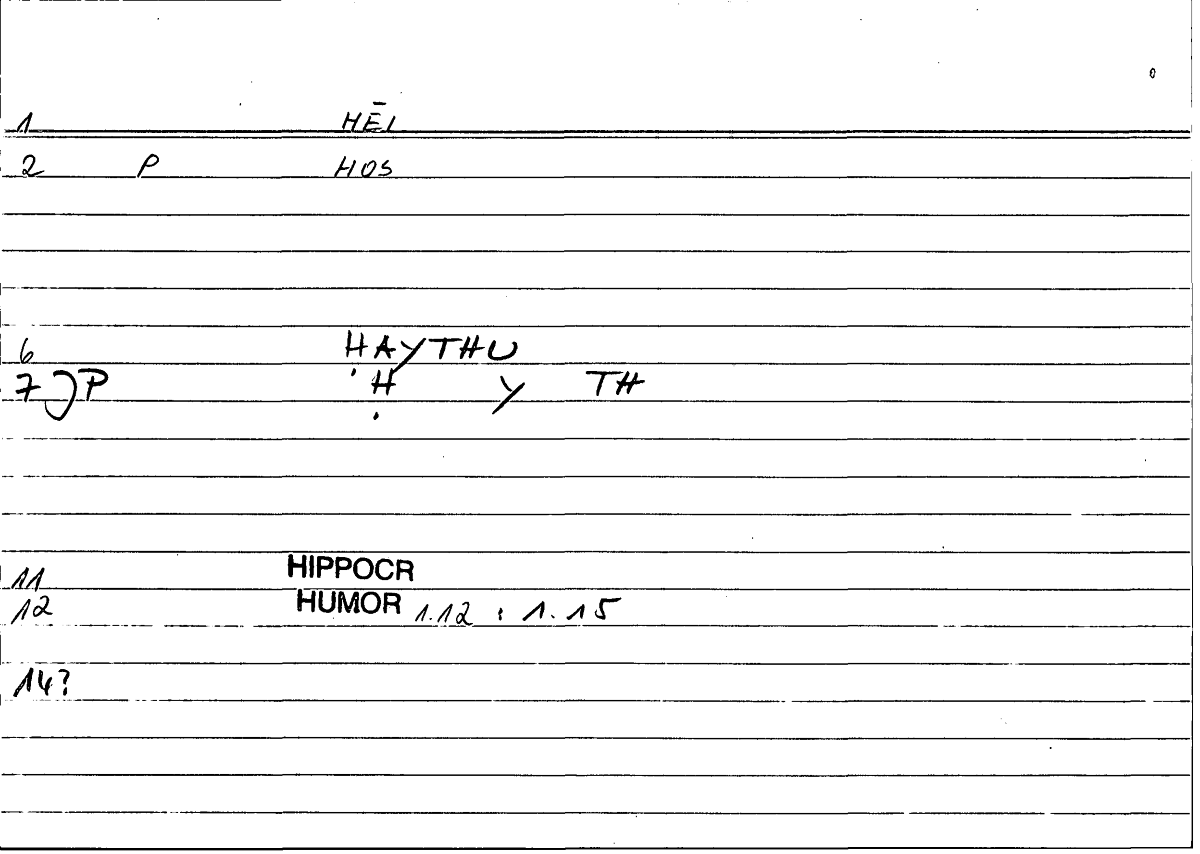 1 HĒI
2 P HOS
6 ḤAYTHU
7 JP Ḥ Y TH
11 HIPPOCR
12 HUMOR 1.12 : 1.15
14?